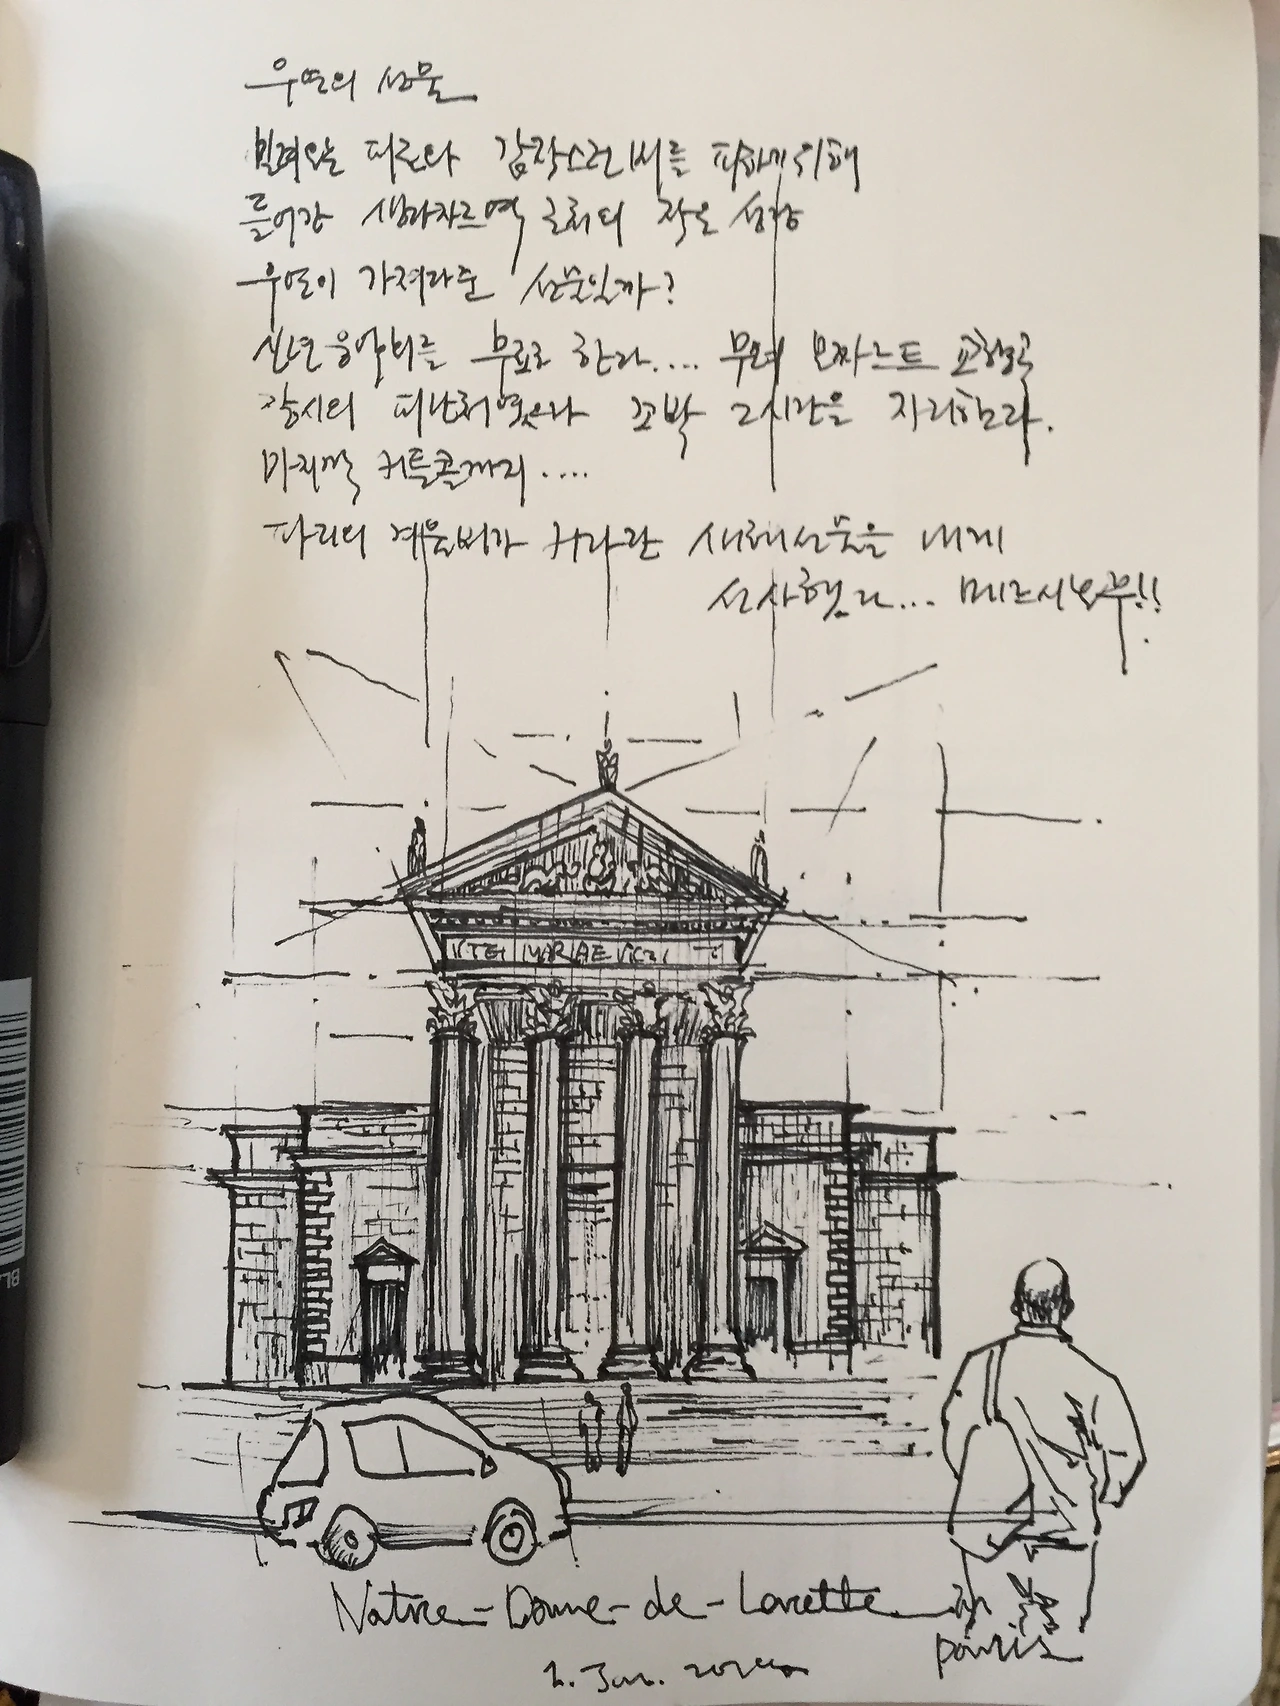 우연의 선물
밀려오는 피로와 갑작스런 비를 피하기 위해
들어간 생라자르역 근처의 작은 성당
우연이 가져다준 선물일까?
신년음악회를 무료로 한다.... 무려 모짜르트 교향곡
잠시의 피난처였으나 꼬박 2시간을 자리했다.
마지막 커튼콜까지....
파리의 겨울비가 커다란 새해선물을 내게
선사했다... 메르시보꾸!!
MARIAE
Notre-Dame-de-Lorette in
paris
Jan.
BL